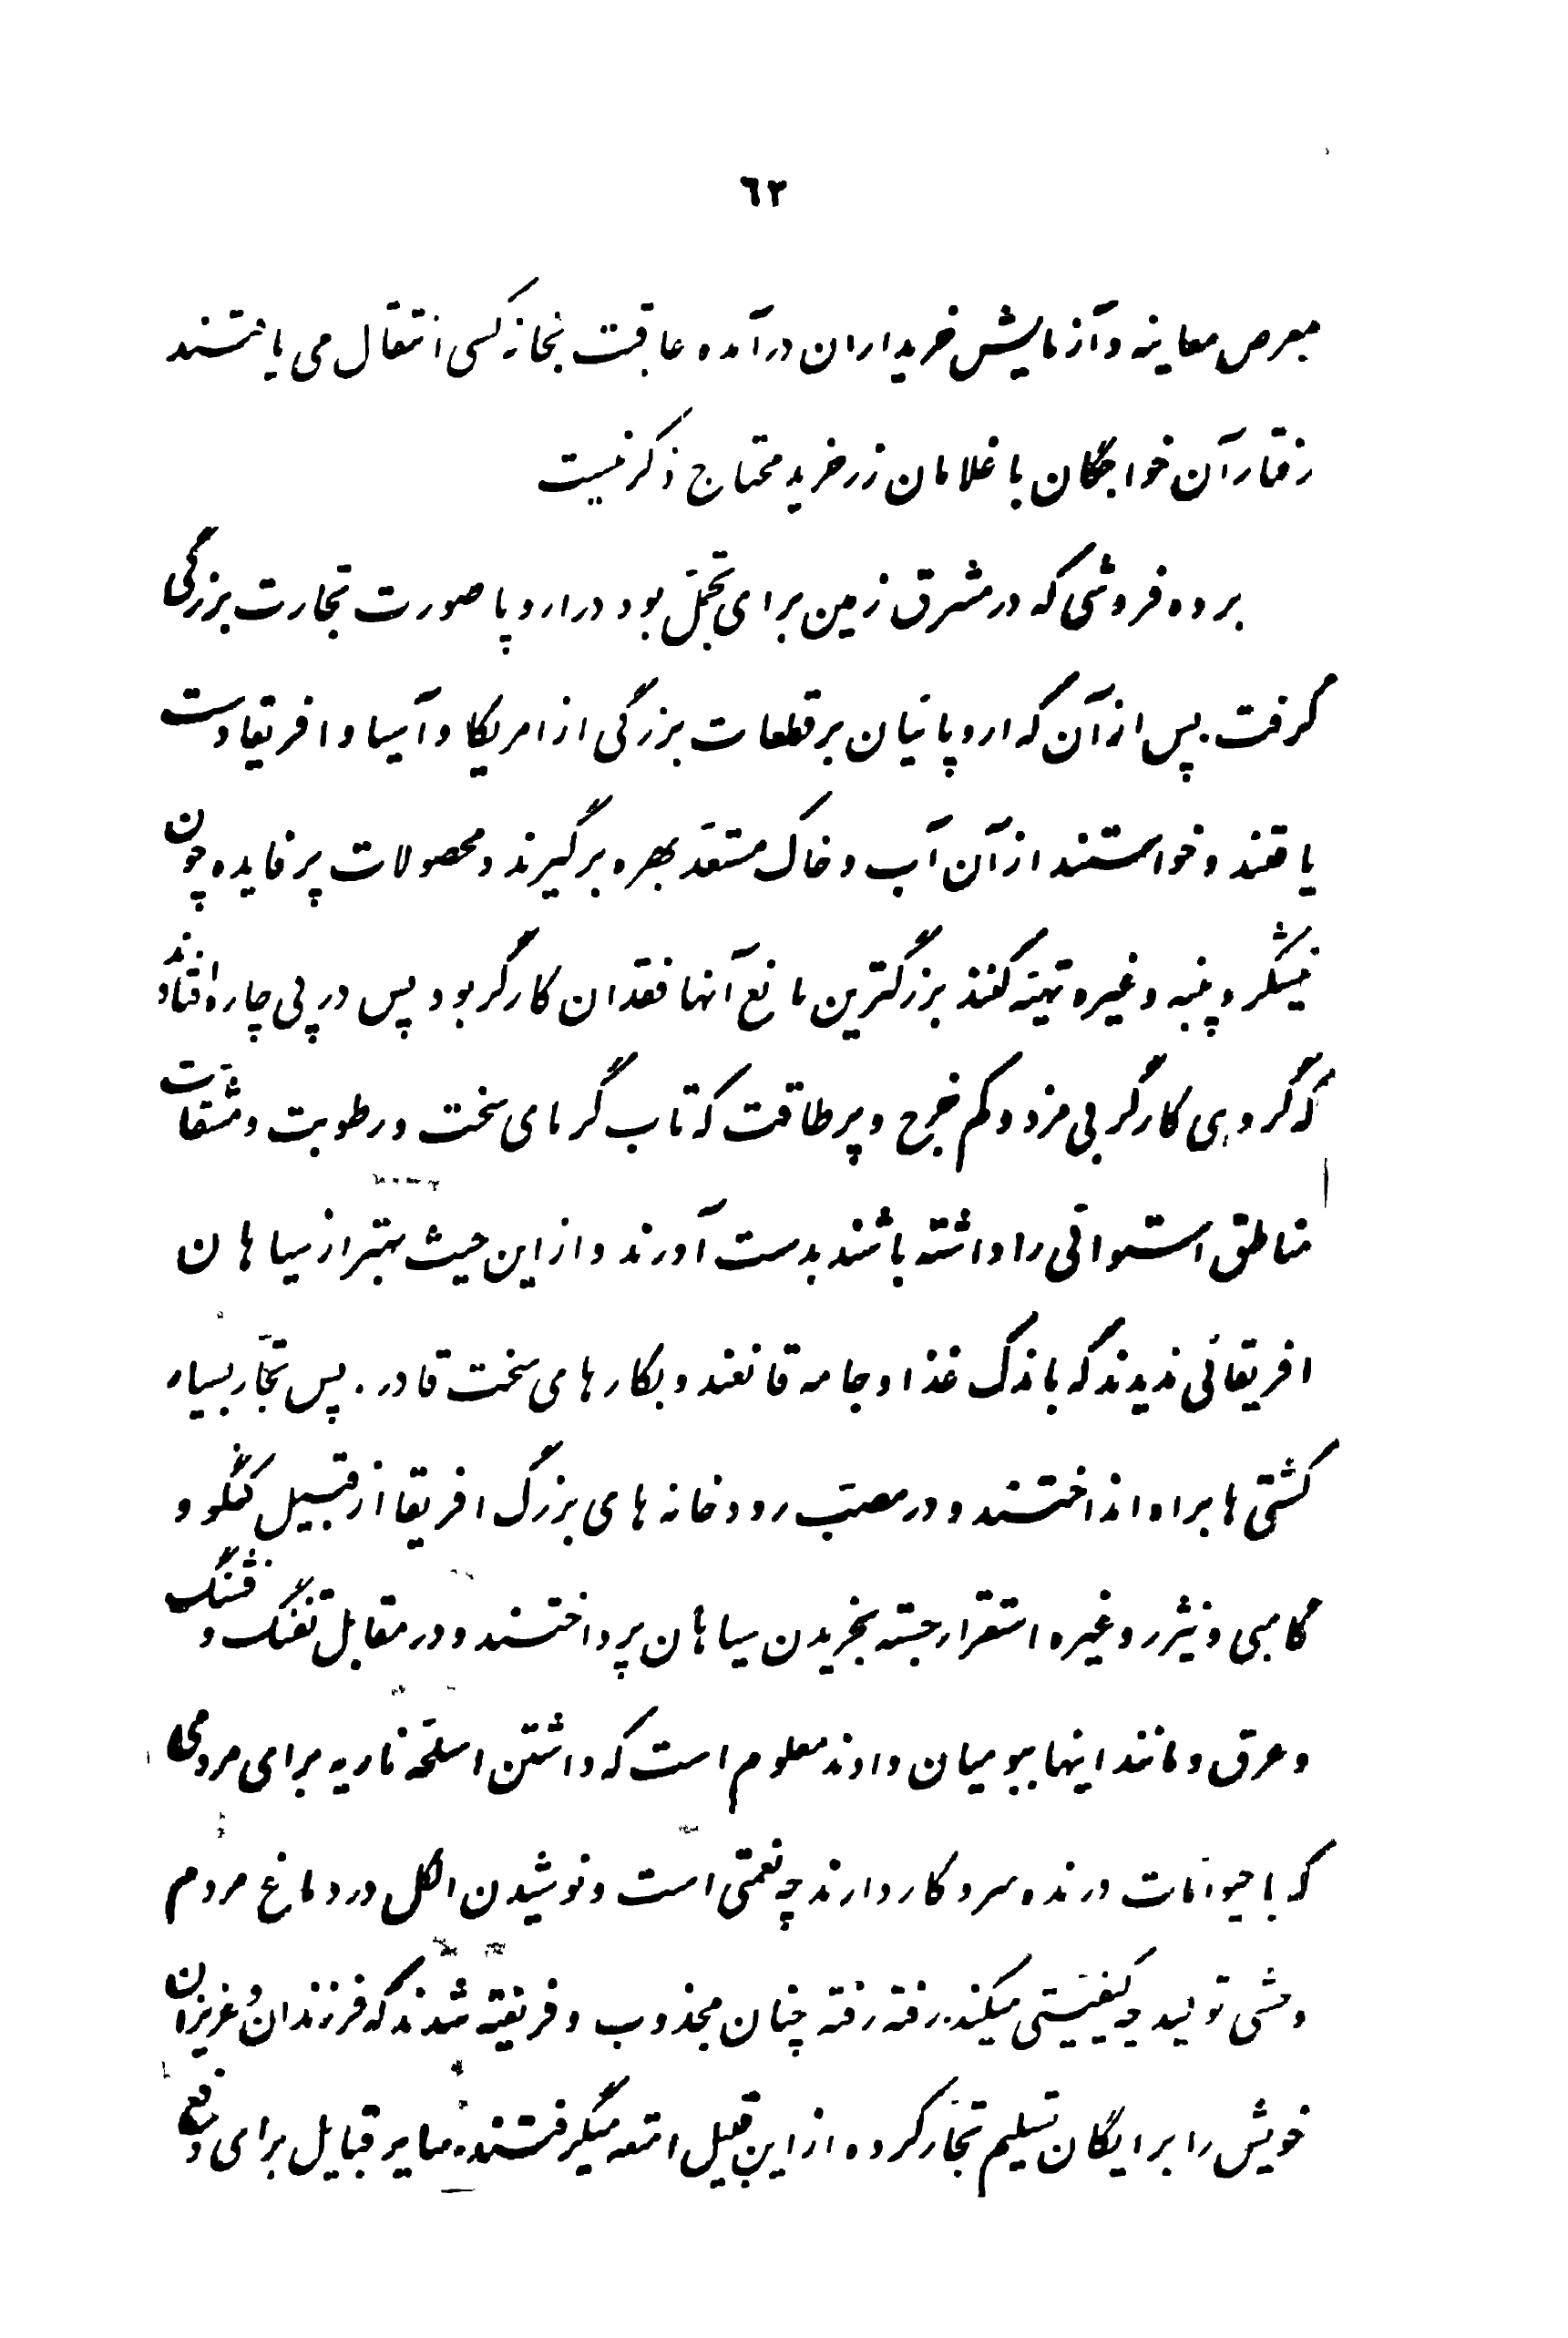 ٦٢
بمعرض معاینه و آزمایش خریداران درآمده عاقبت بخانه کسی انتقال می یافتند
رفتار آن خواجگان با غلامان زرخرید محتاج ذکر نیست
برده فروشی که در مشرق زمین برای تجمّل بود در اروپا صورت تجارت بزرگی
گرفت. پس از آن که اروپائیان بر قطعات بزرگی از امریکا و آسیا و افریقا دست
یافتند و خواستند از آن آب و خاک مستعدّ بهره برگیرند و محصولات پر فایده چون
نیشکر و پنبه و غیره تهیّه کنند بزرگترین مانع آنها فقدان کارگر بود پس در پی چاره افتادند
که گروهی کارگر بی مزد و کم خرج و پر طاقت که تاب گرمای سخت و رطوبت و مشقّات
مناطق استوائی را داشته باشند بدست آورند و از این حیث بهتر از سیاهان
افریقائی ندیدند که باندک غذا و جامه قانعند و بکارهای سخت قادر. پس تجّار بسیار
کشتی ها براه انداختند و در مصبّ رودخانه های بزرگ افریقا از قبیل کنگو و
گامبی و نیژر و غیره استقرار جسته بخریدن سیاهان پرداختند و در مقابل تفنگ و فشنگ
و عرق و مانند اینها ببومیان دادند معلوم است که داشتن اسلحه ناریه برای مردمی
که با حیوانات درنده سر و کار دارند چه نعمتی است و نوشیدن الکل در دماغ مردم
وحشی تولید چه کیفیّتی میکند. رفته رفته چنان مجذوب و فریفته شدند که فرزندان و عزیزان
خویش را برایگان تسلیم تجّار کرده از این قبیل امتعه میگرفتند. سایر قبایل برای دفع